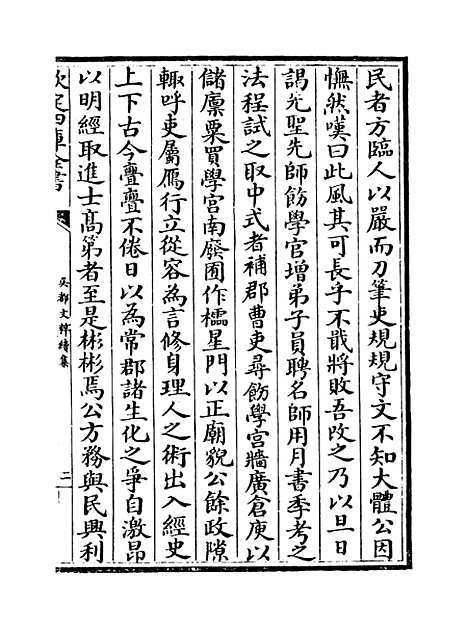 民者方臨人以嚴而刀筆吏規規守文不知大體公因
憮然嘆曰此風其可長乎不戢將敗吾政之乃以旦日
謁先聖先師飭學官增弟子員聘名師用月書季考之
法程試之取中式者補郡曹吏尋飭學宫牆廣倉庾以
儲廩粟買學宫南廢圃作櫺星門以正廟貌公餘政隙
輙呼吏屬鴈行立從容為言修身理人之術出入經史
上下古今亹亹不倦日以為常郡諸生化之爭自激昂
以明經取進士髙第者至是彬彬焉公方務與民興利
欽定四庫全書
吳都文粹續集
二